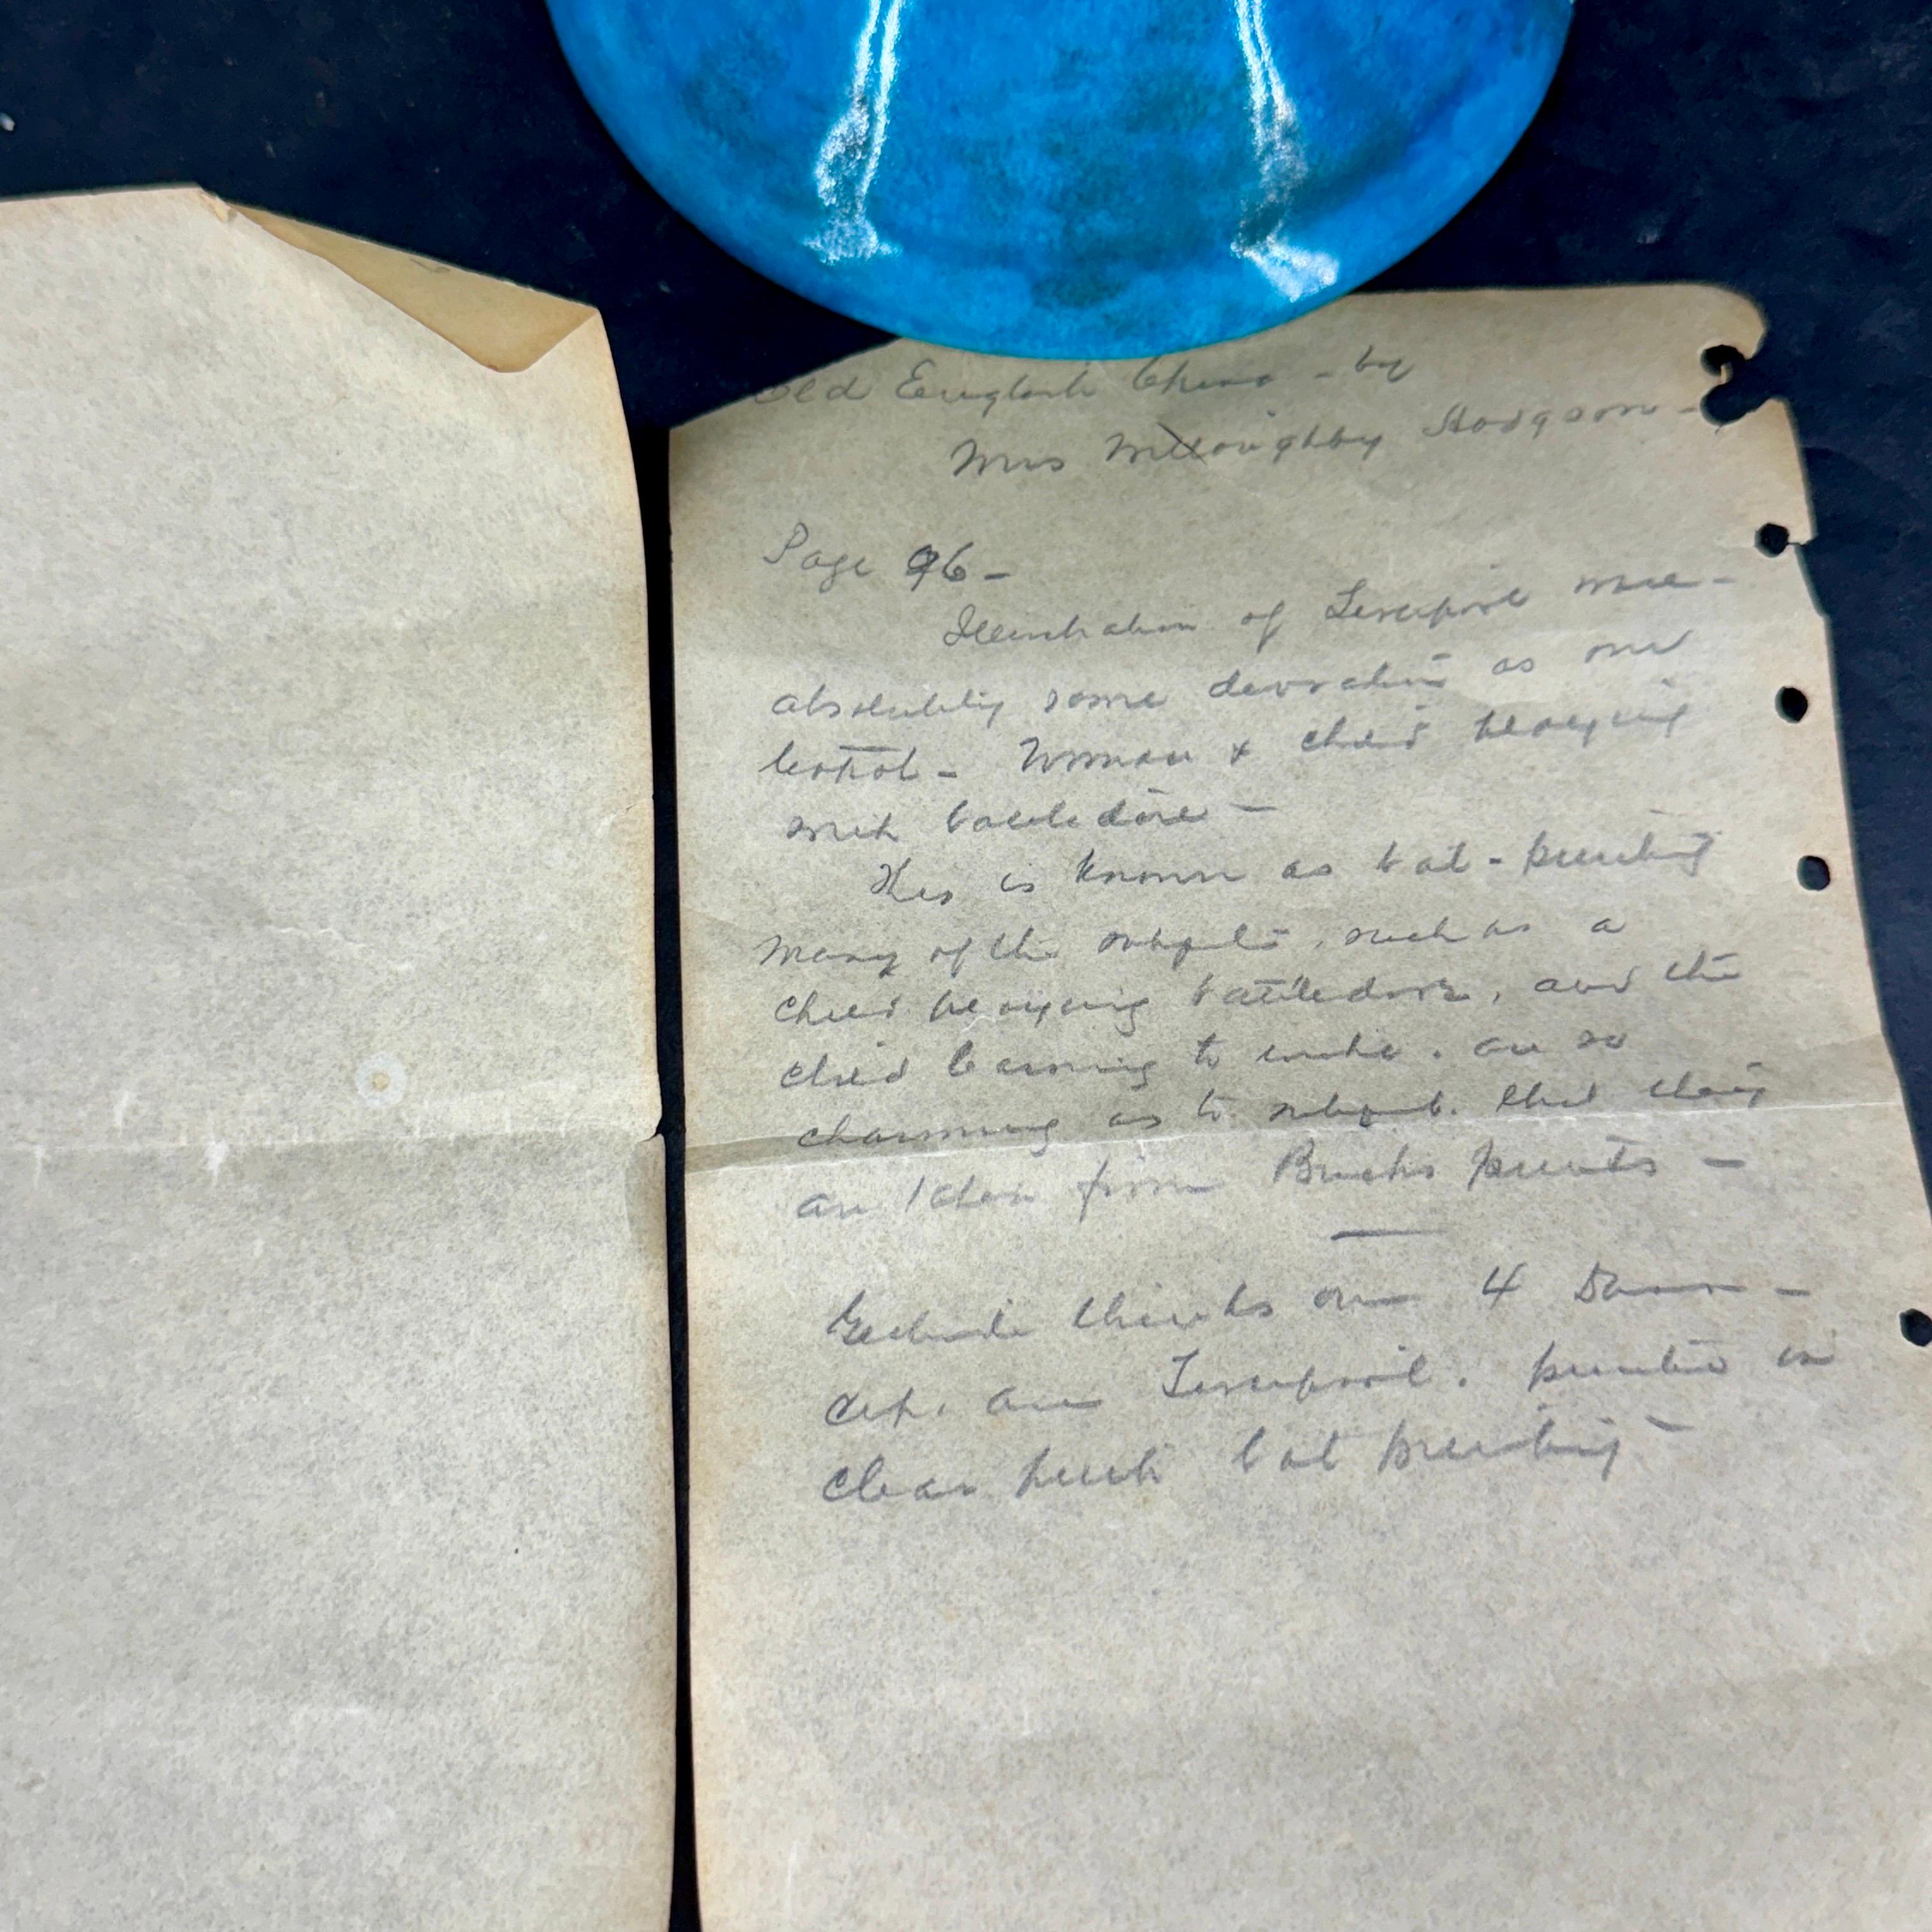 Old English China - by
Mrs Willoughby Hodgson -
Page 96 -
Illustration of Liverpool ware -
absolutely same decoration as our
Woman & child playing
with battledore -
This is known as bat-printing
Many of the subjects, such as a
child playing battledore, and the
child learning to write. are so
charming as to subject. that they
are taken from prints -
Gertrude thinks our 4
are Liverpool. printed in
clear bat printing -